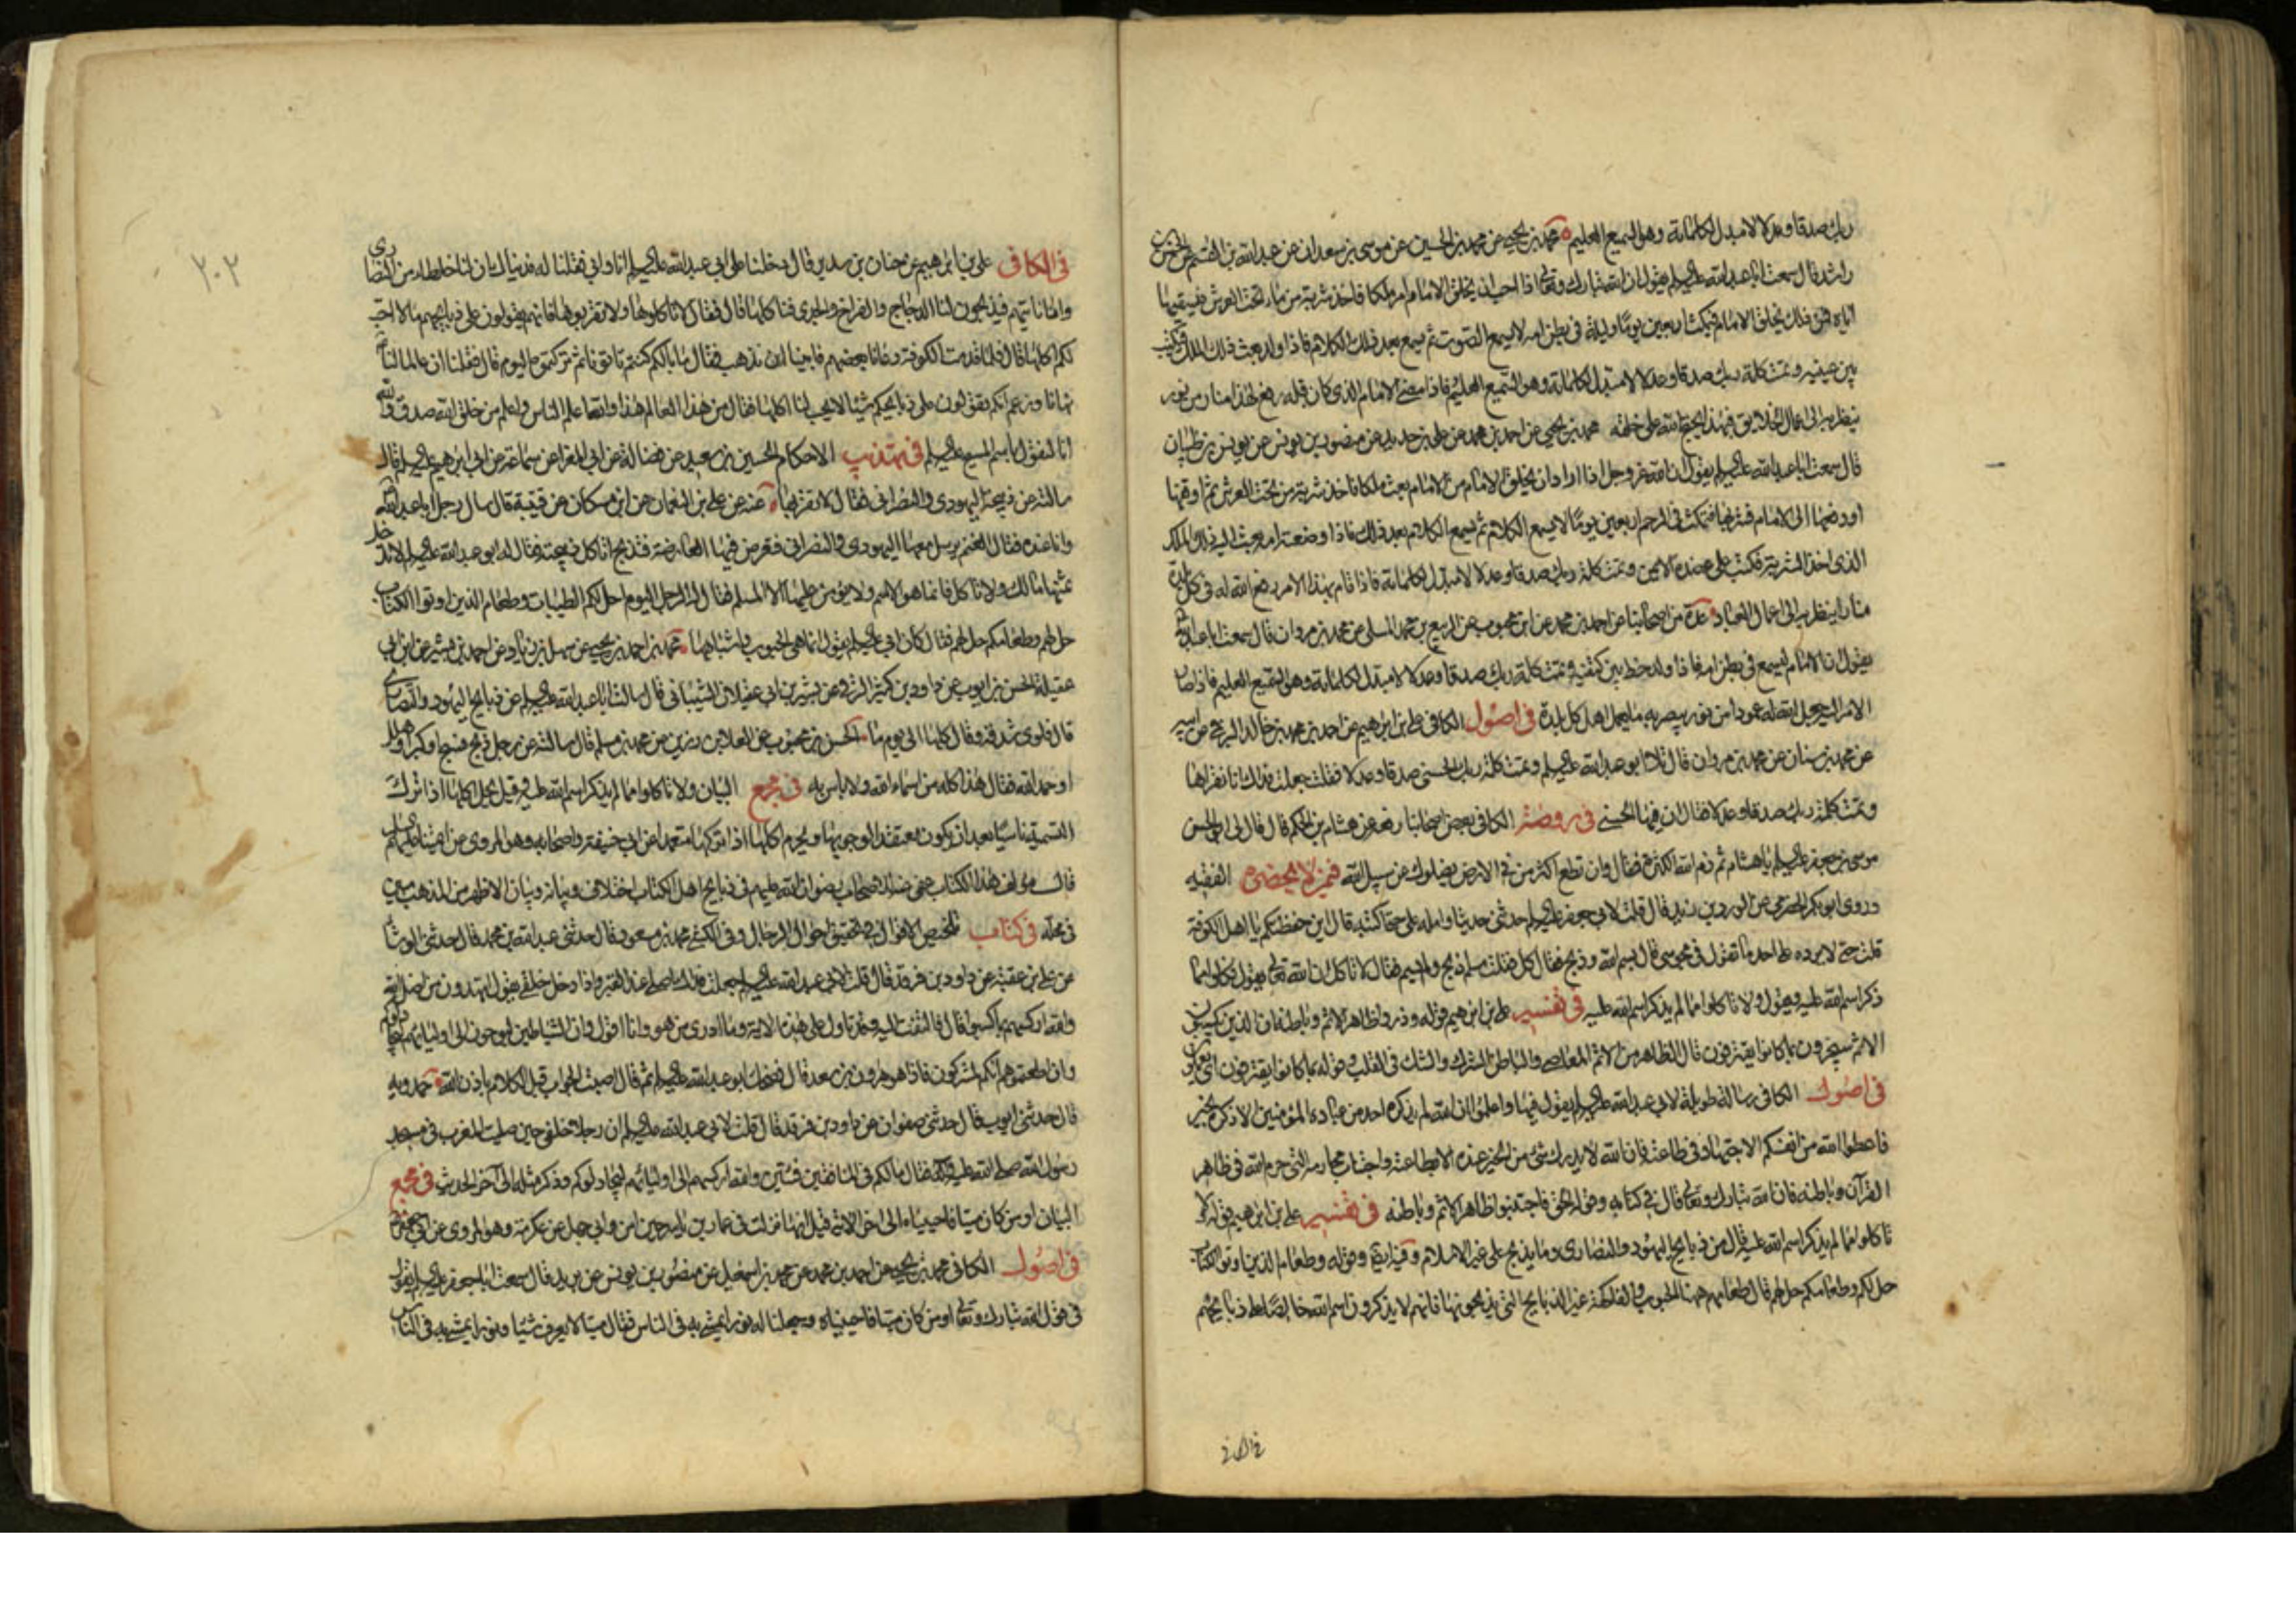 ربك صدقا وعدلا لا مبدل لكلماته وهو السميع العليم محمد بن يحيى عن محمد بن الحسين عن موسى بن سعدان عن عبد الله بن القسم عن الحسن بن
راشد قال سمعت ابا عبد الله عليه السلام يقول ان الله تبارك وتعالى اذا احب ان يخلق الامام امر ملكا فاخذ شربة من ماء تحت العرش فيسقيها
اباه فمن ذلك يخلق الامام فيمكث اربعين يوما وليلة في بطن امه لا يسمع الصوت ثم يسمع بعد ذلك الكلام فاذا ولد بعث ذلك الملك فيكتب
بين عينيه وتمت كلمة ربك صدقا وعدلا لا مبدل لكلماته وهو السميع العليم فاذا مضى الامام الذي كان قبله رفع لهذا منار من نور
ينظر به الى اعمال الخلايق فبهذا يحتج الله على خلقه محمد بن يحيى عن احمد بن محمد عن علي بن حديد عن منصور بن يونس عن يونس بن ظبيان
قال سمعت ابا عبد الله عليه السلام يقول ان الله عز وجل اذا اراد ان يخلق الامام من الامام بعث ملكا فاخذ شربة من تحت العرش ثم اوقعها
او دفعها الى الامام فشربها فيمكث في الرحم اربعين يوما لا يسمع الكلام ثم يسمع الكلام بعد ذلك فاذا وضعته امه بعث اليه ذلك الملك
الذي اخذ الشربة فكتب على عضده الايمن وتمت كلمة ربك صدقا وعدلا لا مبدل لكلماته فاذا قام بهذا الامر رفع الله له في كل بلدة
منارا ينظر به الى اعمال العباد عدة من اصحابنا عن احمد بن محمد عن ابن محبوب عن الربيع بن محمد المسلي عن محمد بن مروان قال سمعت ابا عبد الله
يقول ان الامام ليسمع في بطن امه فاذا ولد خط بين كتفيه وتمت كلمة ربك صدقا وعدلا لا مبدل لكلماته وهو السميع العليم فاذا صار
الامر اليه جعل الله له عمودا من نور يبصر به ما يعمل اهل كل بلدة في اصول الكافي علي بن ابراهيم عن احمد بن محمد بن خالد البرقي عن ابيه
عن محمد بن سنان عن محمد بن مروان قال تلا ابو عبد الله عليه السلم وتمت كلمة ربك الحسنى صدقا وعدلا فقلت جعلت فداك انا نقراها
وتمت كلمة ربك صدقا وعدلا فقال ان فيها الحسنى في روضة الكافي بعض اصحابنا رفعه عن هشام بن الحكم قال قال لي ابو الحسن
موسى بن جعفر عليه السلم يا هشام ثم ذم الله الكثرة فقال وان تطع اكثر من في الارض يضلوك عن سبيل الله فيمن لا يحضره الفقيه
وروى ابو بكر الحضرمي عن الورد بن زيد قال قلت لابي جعفر عليه السلم حدثني حديثا وامله علي حتى اكتبه قال اين حفظكم يا اهل الكوفة
قلت حتى لا يرده علي احد ما تقول في مجوسي قال بسم الله وذبح فقال كل فقلت مسلم ذبح ولم يسم فقال لا تاكل ان الله تعالى يقول فكلوا مما
ذكر اسم الله عليه ويقول ولا تاكلوا مما لم يذكر اسم الله عليه في تفسير علي بن ابراهيم قوله وذروا ظاهر الاثم وباطنه ان الذين يكسبون
الاثم سيجزون بما كانوا يقترفون قال الظاهر من الاثم المعاصي والباطن الشرك والشك في القلب وقوله بما كانوا يقترفون اي يعملون
في اصول الكافي رسالة طويلة لابي عبد الله عليه السلم يقول فيها واعلموا ان الله لم يذكره احد من عباده المؤمنين الا ذكره بخير
فاعطوا الله من انفسكم الاجتهاد في طاعته فان الله لا يدرك شئ من الخير عنده الا بطاعته واجتناب محارمه التي حرم الله في ظاهر
القرآن وباطنه فان الله تبارك وتعالى قال في كتابه وقوله الحق فاجتنبوا ظاهر الاثم وباطنه في تفسير علي بن ابراهيم قوله ولا
تاكلوا مما لم يذكر اسم الله عليه قال من ذبايح اليهود والنصارى وما يذبح على غير الاسلام وفيه ايضا وقوله وطعام الذين اوتوا الكتاب
حل لكم وطعامكم حل لهم قال طعامهم ههنا الحبوب والفاكهة غير الذبايح التي يذبحونها فانهم لا يذكرون اسم الله خالصا على ذبايحهم
في الكافي علي بن ابراهيم عن حنان بن سدير قال دخلنا على ابي عبد الله عليه السلم انا وابي فقلنا له فديناك ان لنا خلطاء من النصارى
وانا ناتيهم فيذبحون لنا الدجاج والفراخ والجدي فناكلها قال فقال لا تاكلوها ولا تقربوها فانهم يقولون على ذبايحهم ما لا احب
لكم اكلها قال فلما قدمت الكوفة دعانا بعضهم فابينا ان نذهب فقال ما بالكم كنتم تاتونا ثم تركتموه اليوم قال فقلنا ان عالما لنا
نهانا وزعم انكم تقولون على ذبايحكم شيئا لا يحب لنا اكلها فقال من هذا العالم هذا والله اعلم الناس واعلم من خلق الله صدق والله
انا لنقول باسم المسيح عليه السلم في تهذيب الاحكام الحسين بن سعيد عن فضالة عن ابي المغرا عن سماعة عن ابي ابراهيم عليه السلم قال
سالته عن ذبيحة اليهودي والنصراني فقال لا تقربها عنه عن علي بن النعمان عن ابن مسكان عن قتيبة قال سال رجل ابا عبد الله
وانا عنده فقال الغنم يرسل معها اليهودي والنصراني فتعرض فيها العارضة فتذبح اناكل ذبيحته فقال له ابو عبد الله عليه السلم لا تدخل
ثمنها مالك ولا تاكل فانما هو الاسم ولا يؤمن عليها الا المسلم فقال له الرجل اليوم احل لكم الطيبات وطعام الذين اوتوا الكتاب
حل لكم وطعامكم حل لهم فقال كان ابي عليه السلم يقول انما هي الحبوب واشباهها محمد بن احمد بن يحيى عن سهل بن زياد عن احمد بن بشير عن ابن ابي
عقيلة الحسن بن ايوب عن داود بن كثير الرقي عن بشر بن ابي غيلان الشيباني قال سالت ابا عبد الله عليه السلم عن ذبايح اليهود والنصارى
قال فلوى شدقه وقال كلها الى يوم ما الحسن بن محبوب عن العلا بن رزين عن محمد بن مسلم قال سالته عن رجل ذبح فسبح او كبر او هلل
او حمد الله فقال هذا كله من اسماء الله ولا باس به في مجمع البيان ولا تاكلوا مما لم يذكر اسم الله عليه وقيل يحل اكلها اذا ترك
التسمية ناسيا بعد ان يكون معتقدا لوجوبها ويحرم اكلها اذا تركها متعمدا عن ابي حنيفة واصحابه وهو المروي عن ائمتنا عليهم السلم
قال مؤلف هذا الكتاب عفى عنه للاصحاب رضوان الله عليهم في ذبايح اهل الكتاب اختلاف وبيانه وبيان الاظهر من المذهب مبين
في محله في كتاب تلخيص الاقوال في تحقيق احوال الرجال وفي الكشي محمد بن مسعود قال حدثني عبد الله بن محمد قال حدثني الوشا
عن علي بن عقبة عن داود بن فرقد قال قلت لابي عبد الله عليه السلم جعلت فداك كنت اصلي عند القبر واذا رجل خلفي يقول اتريدون ان تهدوا من اضل الله
والله اركسهم بما كسبوا قال فالتفت اليه وقد تاول علي هذه الاية وما ادري من هو وانا اقول وان الشياطين ليوحون الى اوليائهم ليجادلوكم
وان اطعتموهم انكم لمشركون فاذا هو هرون بن سعد قال فضحك ابو عبد الله عليه السلم ثم قال اصبت الجواب قبل الكلام باذن الله حمدويه
قال حدثني ايوب قال حدثني صفوان عن داود بن فرقد قال قلت لابي عبد الله عليه السلم ان رجلا خلفي حين صليت المغرب في مسجد
رسول الله صلى الله عليه وآله فقال ما لكم في المنافقين فئتين والله اركسهم الى اوليائهم ليجادلوكم وذكر مثله الى آخر الحديث في مجمع
البيان اومن كان ميتا فاحييناه الى اخر الاية قيل انها نزلت في عمار بن ياسر حين امن وابي جهل عن عكرمة وهو المروي عن ابي جعفر
في اصول الكافي محمد بن يحيى عن احمد بن محمد عن محمد بن اسمعيل عن منصور بن يونس عن بريد قال سمعت ابا جعفر عليه السلم يقول
في قول الله تبارك وتعالى اومن كان ميتا فاحييناه وجعلنا له نورا يمشي به في الناس فقال ميتا لا يعرف شيئا ونورا يمشي به في الناس
٢٠٢